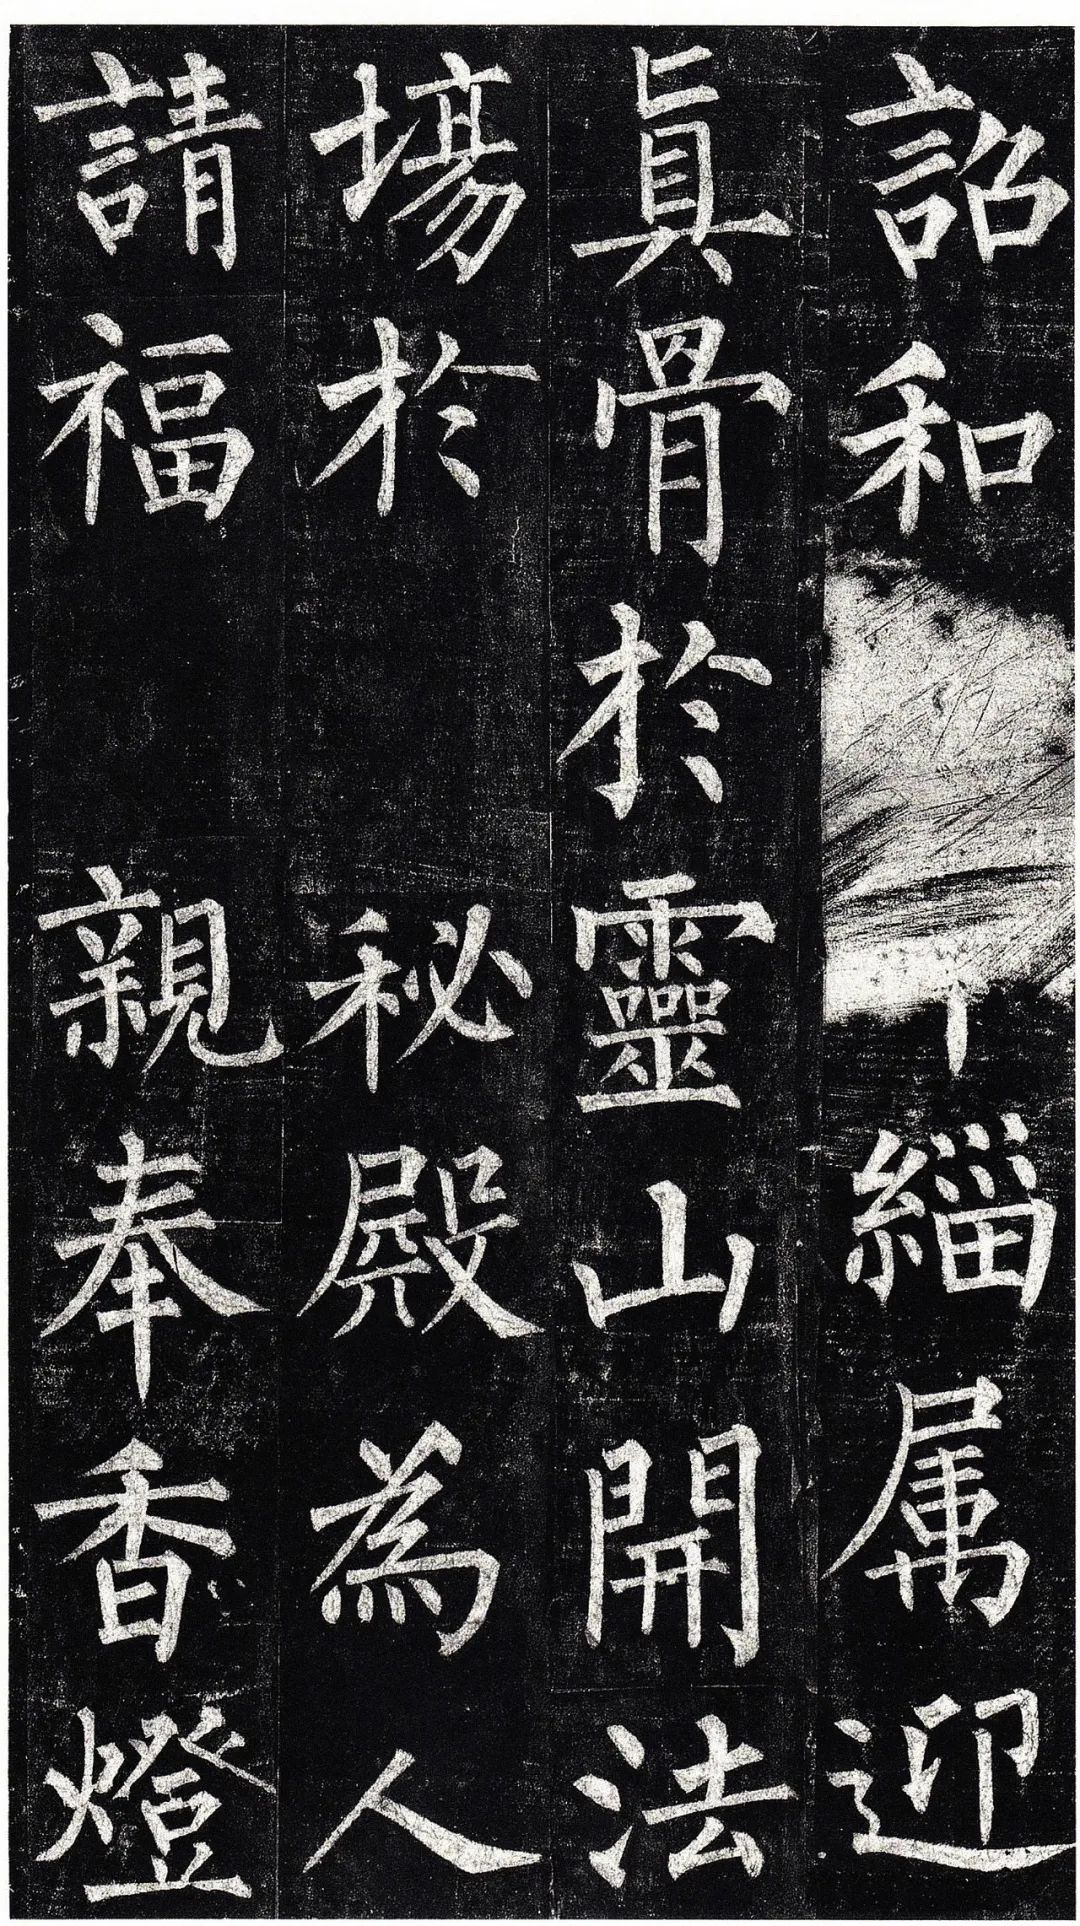 詔和緇属迎
真骨於靈山開法
場於秘殿為人
請福親奉香燈